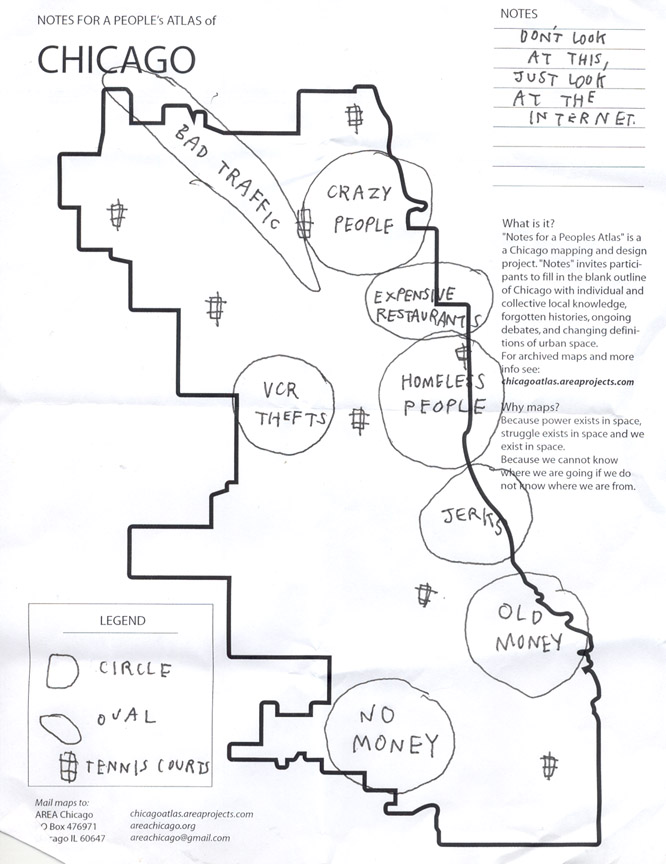 NOTES FOR A PEOPLE'S ATLAS of
CHICAGO
NOTES
DON'T LOOK
AT THIS,
JUST LOOK
AT THE
INTERNET.
BAD TRAFFIC
CRAZY
PEOPLE
EXPENSIVE
RESTAURANTS
VCR
THEFTS
HOMELESS
PEOPLE
JERKS
OLD
MONEY
NO
MONEY
What is it?
"Notes for a Peoples Atlas" is a
a Chicago mapping and design
project. "Notes" invites partici-
pants to fill in the blank outline
of Chicago with individual and
collective local knowledge,
forgotten histories, ongoing
debates, and changing defini-
tions of urban space.
For archived maps and more
info see:
chicagoatlas.areaprojects.com
Why maps?
Because power exists in space,
struggle exists in space and we
exist in space.
Because we cannot know
where we are going if we do
not know where we are from.
LEGEND
CIRCLE
OVAL
TENNIS COURTS
Mail maps to:
AREA Chicago
O Box 476971
ago IL 60647
chicagoatlas.areaprojects.com
areachicago.org
areachicago@gmail.com